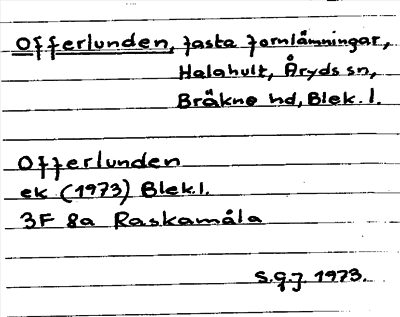 Offerlunden, fasta fornlämningar,
Halahult, Åryds sn,
Bräkne hd, Blek. l.
Offerlunden
ek (1973) Blek. l.
3F 8a Raskamåla
S.G.J. 1973.